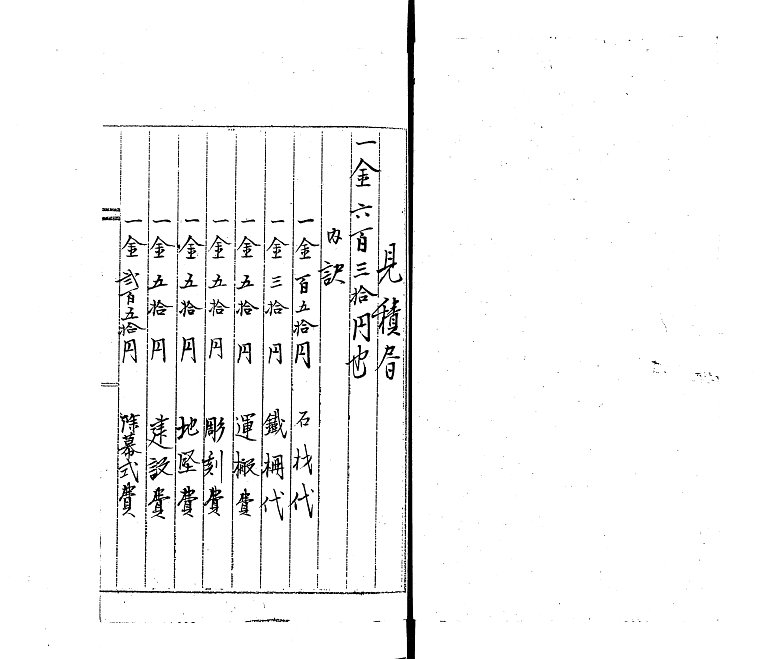 見積書
一金六百三拾円也
内訳
一金百五拾円 石材代
一金三拾円 鐵柵代
一金五拾円 運搬費
一金五拾円 彫刻費
一金五拾円 地堅費
一金五拾円 建設費
一金弐百五拾円 除幕式費